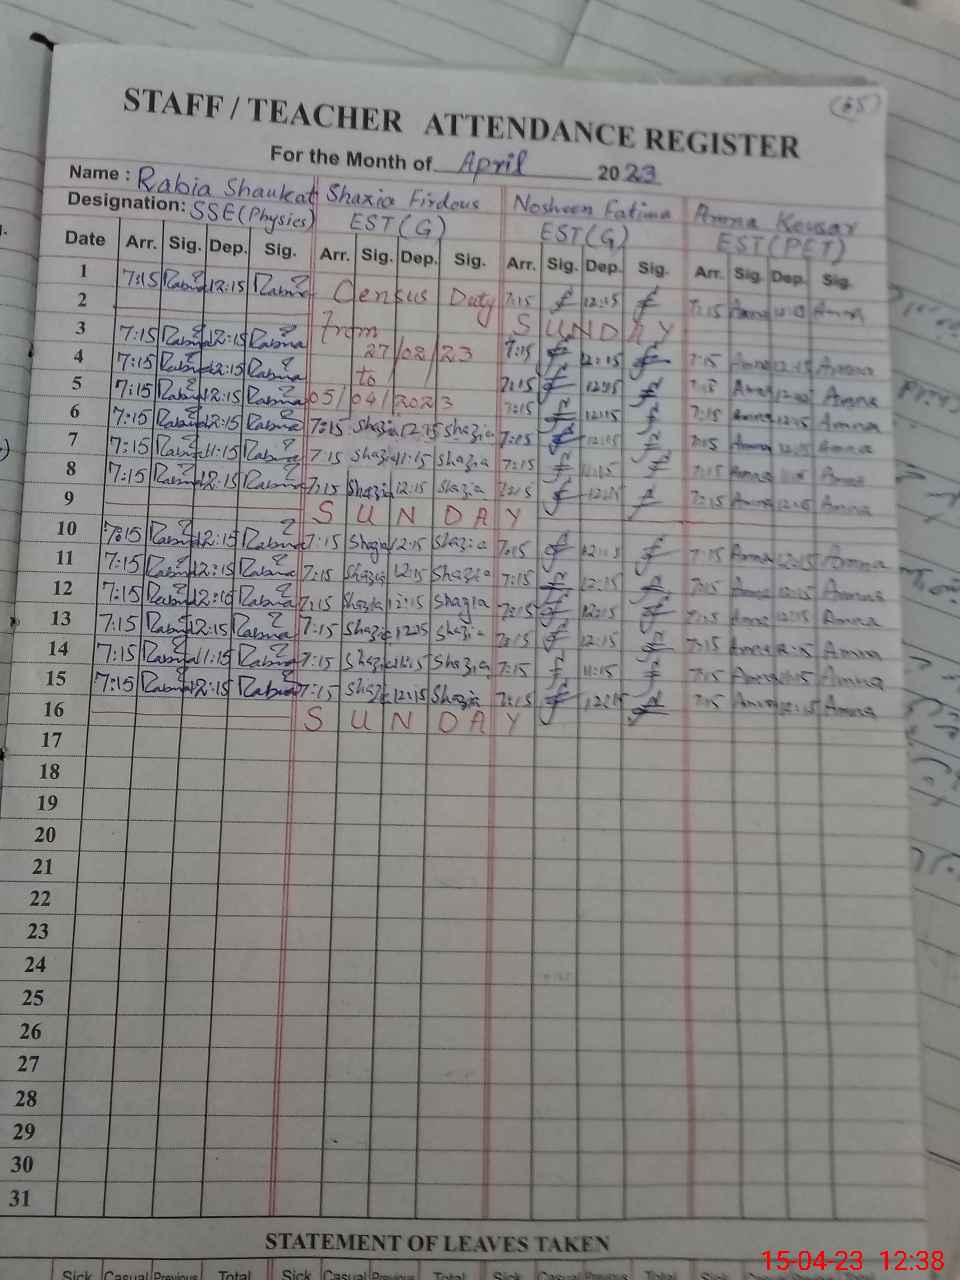 (65)
STAFF / TEACHER ATTENDANCE REGISTER
For the Month of April 2023
Name : Rabia Shaukat Shazia Firdous Nosheen Fatima Amna Kousar
Designation: SSE(Physics) EST(G) EST(G) EST(PET)
Date Arr. Sig. Dep. Sig. Arr. Sig. Dep. Sig. Arr. Sig. Dep. Sig. Arr. Sig. Dep. Sig.
1 7:15 Rabia 12:15 Rabia Census Duty 7:15 12:15 7:15 Amna Amna
2 from SUNDAY
3 7:15 Rabia 12:15 Rabia 27/02/23 7:15 12:15 7:15 Amna 12:15 Amna
4 7:15 Rabia 12:15 Rabia to 7:15 12:15 Amna Amna
5 7:15 Rabia 12:15 Rabia 05/04/2023 7:15 12:15 7:15 Amna 12:15 Amna
6 7:15 Rabia 12:15 Rabia 7:15 Shazia 12:15 Shazia 7:15 12:15 7:15 Amna 12:15 Amna
7 7:15 Rabia 11:15 Rabia 7:15 Shazia 11:15 Shazia 7:15 11:15 7:15 Amna Amna
8 7:15 Rabia 12:15 Rabia 7:15 Shazia 12:15 Shazia 7:15 12:15 7:15 Amna 12:15 Amna
9 SUNDAY
10 7:15 Rabia 12:15 Rabia 7:15 Shazia 12:15 Shazia 7:15 12:15 7:15 Amna 12:15 Amna
11 7:15 Rabia 12:15 Rabia 7:15 Shazia 12:15 Shazia 7:15 12:15 7:15 Amna 12:15 Amna
12 7:15 Rabia Rabia 7:15 Shazia 12:15 Shazia 7:15 12:15 7:15 Amna 12:15 Amna
13 7:15 Rabia 12:15 Rabia 7:15 Shazia 12:15 Shazia 7:15 12:15 7:15 Amna 12:15 Amna
14 7:15 Rabia 11:15 Rabia 7:15 Shazia 11:15 Shazia 7:15 11:15 7:15 Amna 11:15 Amna
15 7:15 Rabia 12:15 Rabia 7:15 Shazia 12:15 Shazia 7:15 12:15 7:15 Amna 12:15 Amna
16 SUNDAY
17
18
19
20
21
22
23
24
25
26
27
28
29
30
31
STATEMENT OF LEAVES TAKEN
Sick Casual Previous Total Sick Casual Previous Total Sick Casual Previous Total Sick
15-04-23 12:38